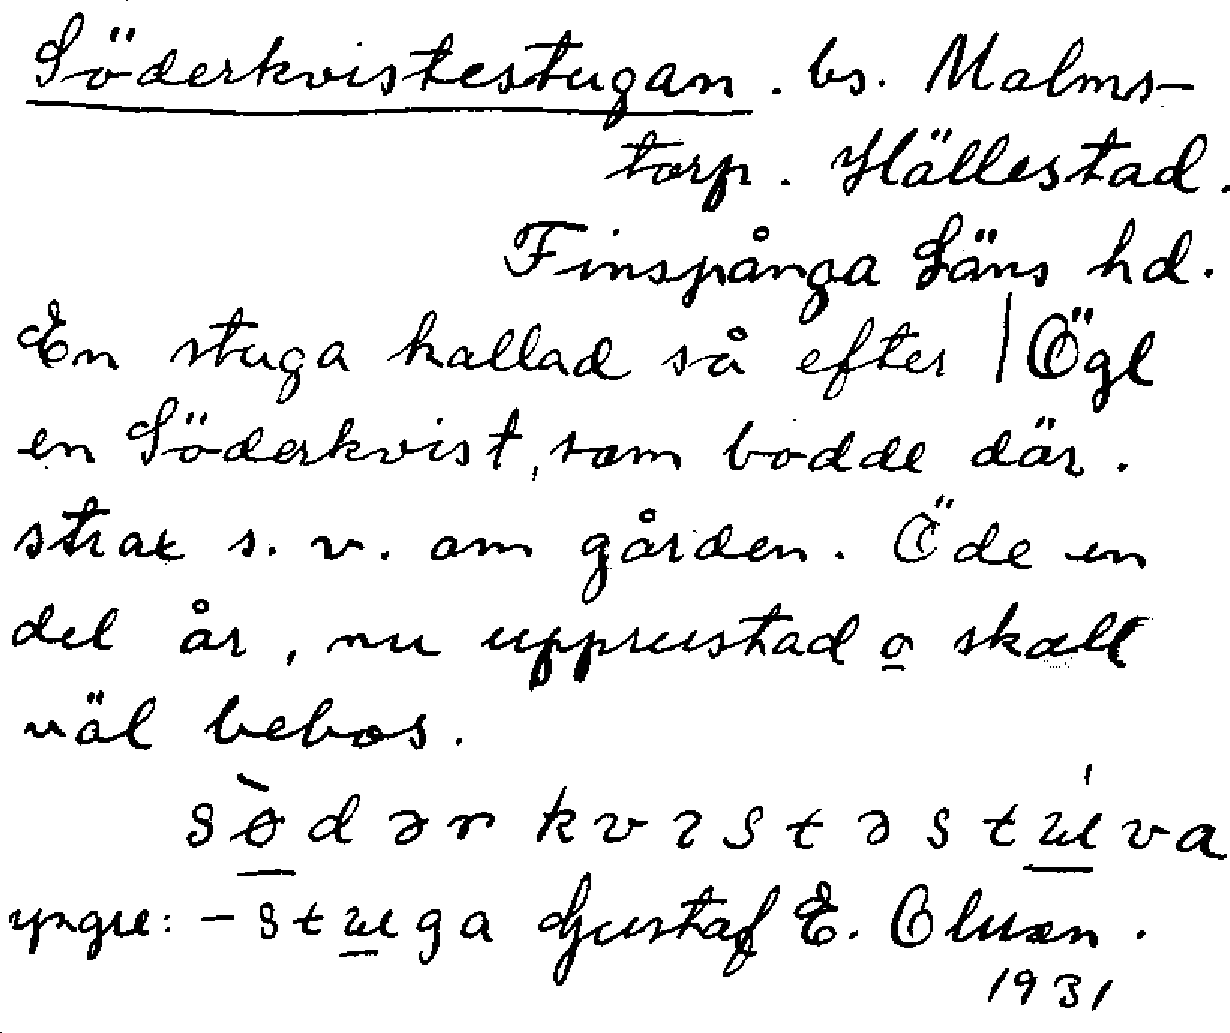 Söderkvistestugan. bs. Malms-
torp. Hällestad.
Finspånga Läns hd.
En stuga kallad så efter | Ögl
en Söderkvist, som bodde där.
strax s. v. om gården. Öde en
del år, nu upprustad o skall
väl bebos.
sɵ̀dərkvɩstəstúva
yngre: -stuga Gustaf E. Olsson.
1931